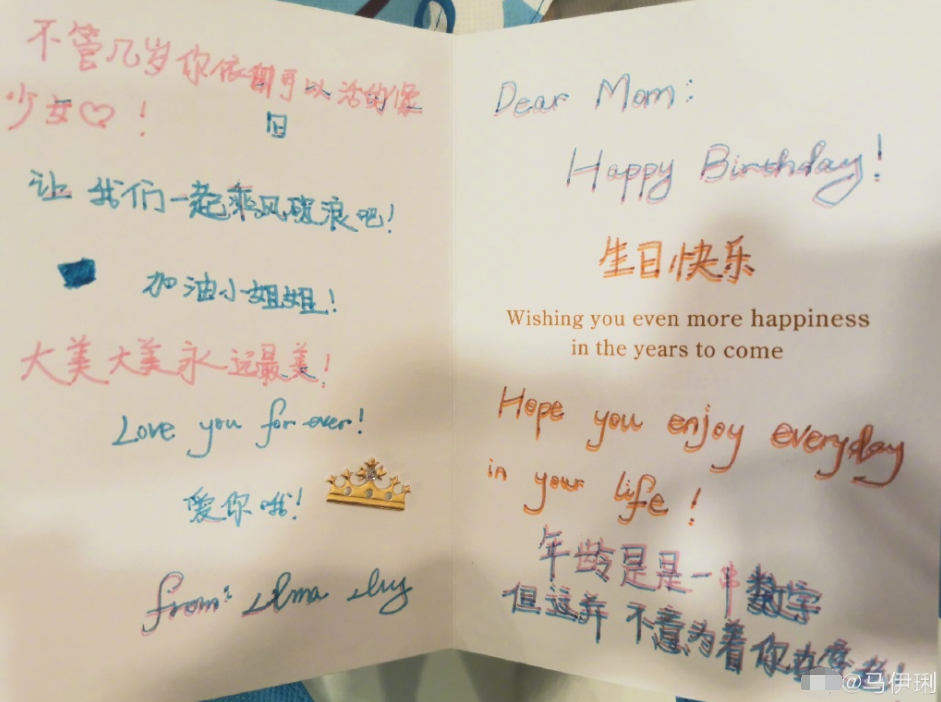 不管几岁你依旧可以活的像
少女♡!
旧
让我们一起乘风破浪吧!
加油小姐姐!
大美大美永远最美!
Love you for ever!
爱你哦!
from: Alma Ivy
Dear Mom:
Happy Birthday!
生日快乐
Wishing you even more happiness
in the years to come
Hope you enjoy everyday
in your life!
年龄是是一串数字
但这并不意为着你在变老!
@马伊琍